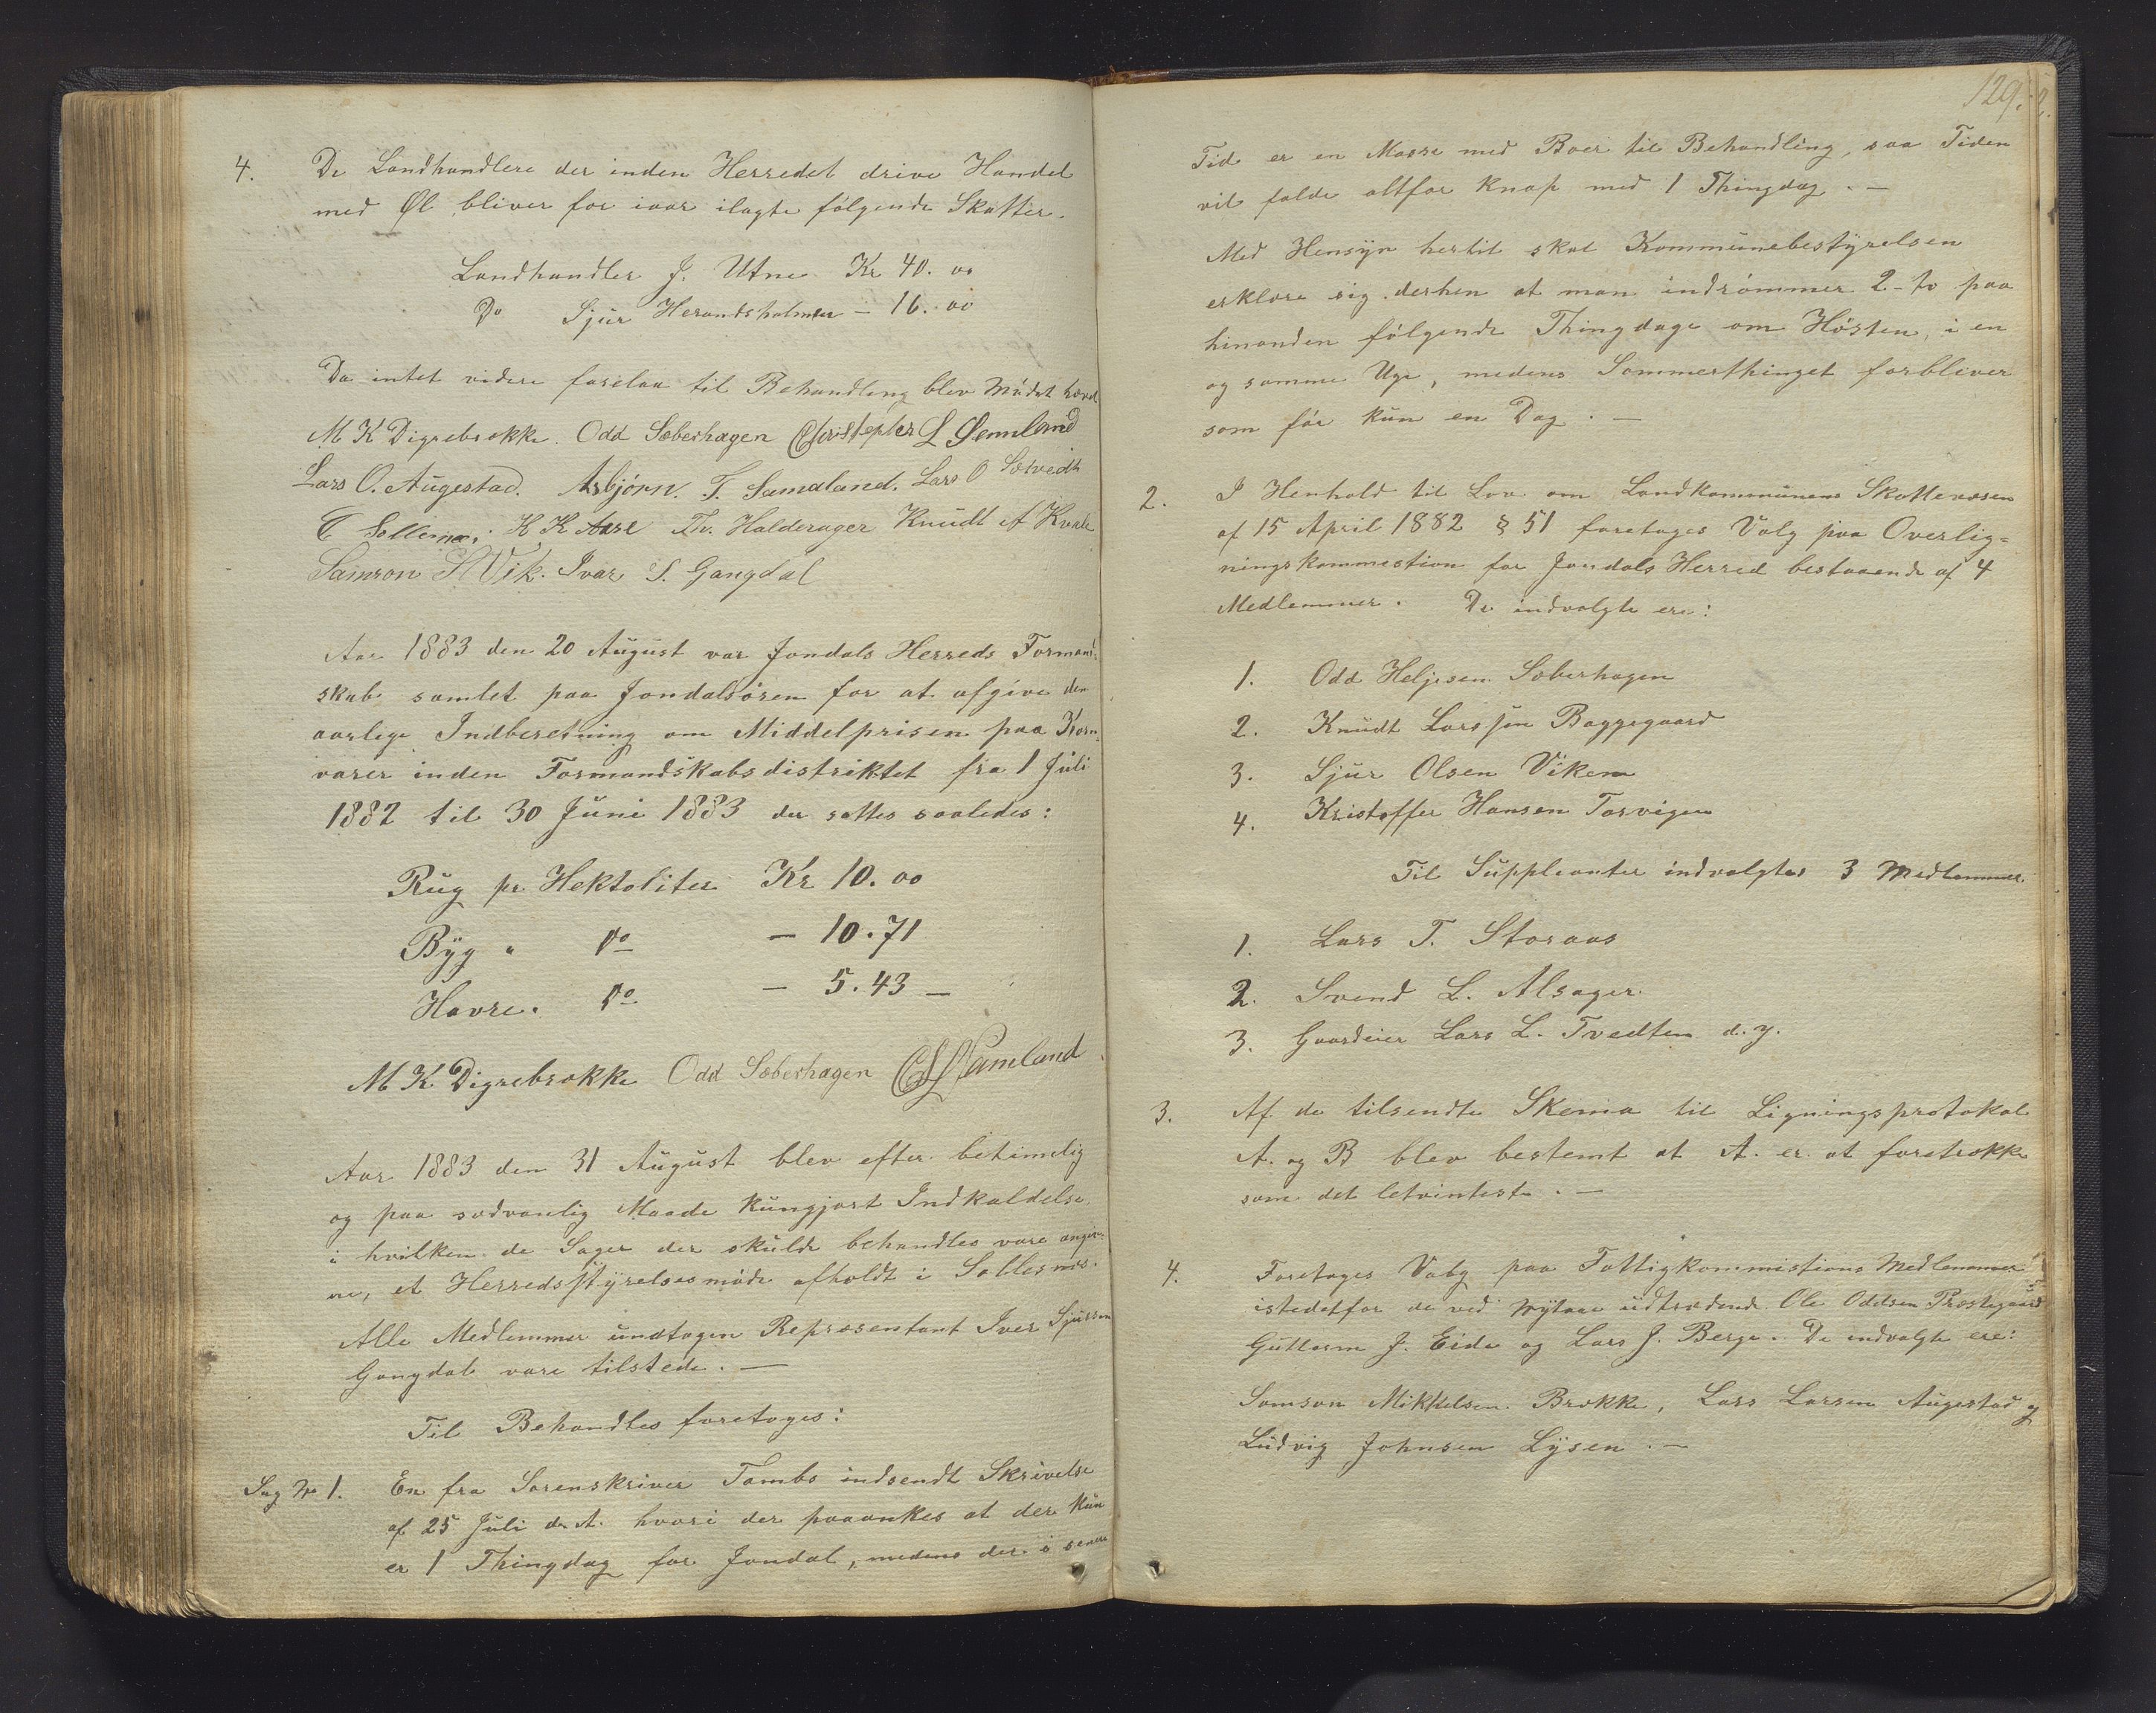 4. De Landhandlere der inden Herredet drive Handel
med Øl bliver for iaar ilagte følgende Skatter.
Landhandler J. Utne Kr 40. 00
Do Sjur Herandsholmen – 16. 00
Da intet videre forelaa til Behandling blev Mødet hævet
M K Digrebrække. Odd Sæberhagen Christopher L Semland
Lars O. Augestad. Asbjørn. T. Samaland. Lars O
H K Aase Th. Halderager Knudt A Kvale
Samson S Vik. Ivar S. Gangdal
Aar 1883 den 20 August var Jondals Herreds Formand-
skab samlet paa Jondalsøren for at afgive den
aarlige Indberetning om Middelprisen paa Korn-
varer inden Formandskabsdistriktet fra 1 Juli
1882 til 30 Juni 1883 der sattes saaledes:
Rug pr Hektoliter Kr 10. 00
Byg " Do – 10. 71
Havre. Do – 5. 43 –
M K Digrebrække Odd Sæberhagen C L Samland
Aar 1883 den 31 August blev efter betimelig
og paa sædvanlig Maade kungjort Indkaldelse
i hvilken de Sager der skulde behandles vare angiv-
ne, et Herredsstyrelsesmøde afholdt i Sollesnes.
Alle Medlemmer undtagen Repræsentant Iver Sjursen
Gangdal vare tilstede. —
Til Behandles foretoges:
Sag No 1. En fra Sorenskriver Tambs indsendt Skrivelse
af 25 Juli d. A. hvori der paaankes at der kun
er 1 Thingdag for Jondal, medens der i senere
129.
Tid er en Masse med Boer til Behandling, saa Tiden
vil falde altfor knap med 1 Thingdag. —
Med Hensyn hertil skal Kommunebestyrelsen
erklære sig derhen at man indrømmer 2 - to paa
hinanden følgende Thingdage om Høsten, i en
og samme Uge, medens Sommerthinget forbliver
som før kun en Dag. —
2. I Henhold til Lov om Landkommunens Skattevæsen
af 15 April 1882 § 51 foretages Valg paa Overlig-
ningskommestion for Jondals Herred bestaaende af 4
Medlemmer. De indvalgte ere:
1. Odd Heljesen Sæberhagen
2. Knudt Larssøn Baggegaard
3. Sjur Olsen Viken
4. Kristoffer Hansen Torvigen
Til Suppleanter indvalgtes 3 Medlemmer.
1. Lars T. Storaas
2. Svend L. Alsager
3. Gaardeier Lars L. Tvedten d. y.
3. Af de tilsendte Skema til Ligningsprotokol
A. og B blev bestemt at A. er at foretrække
som det letvinteste. —
4. Foretages Valg paa Fattigkommistions Medlemmer
istedetfor de ved Nytaar udtrædende Ole Oddsen Prestegaard
Guttorm J. Eide og Lars J. Berge. De indvalgte ere:
Samson Mikkelsen Brække, Lars Larsen Augestad og
Ludvig Johnsen Lysen. —